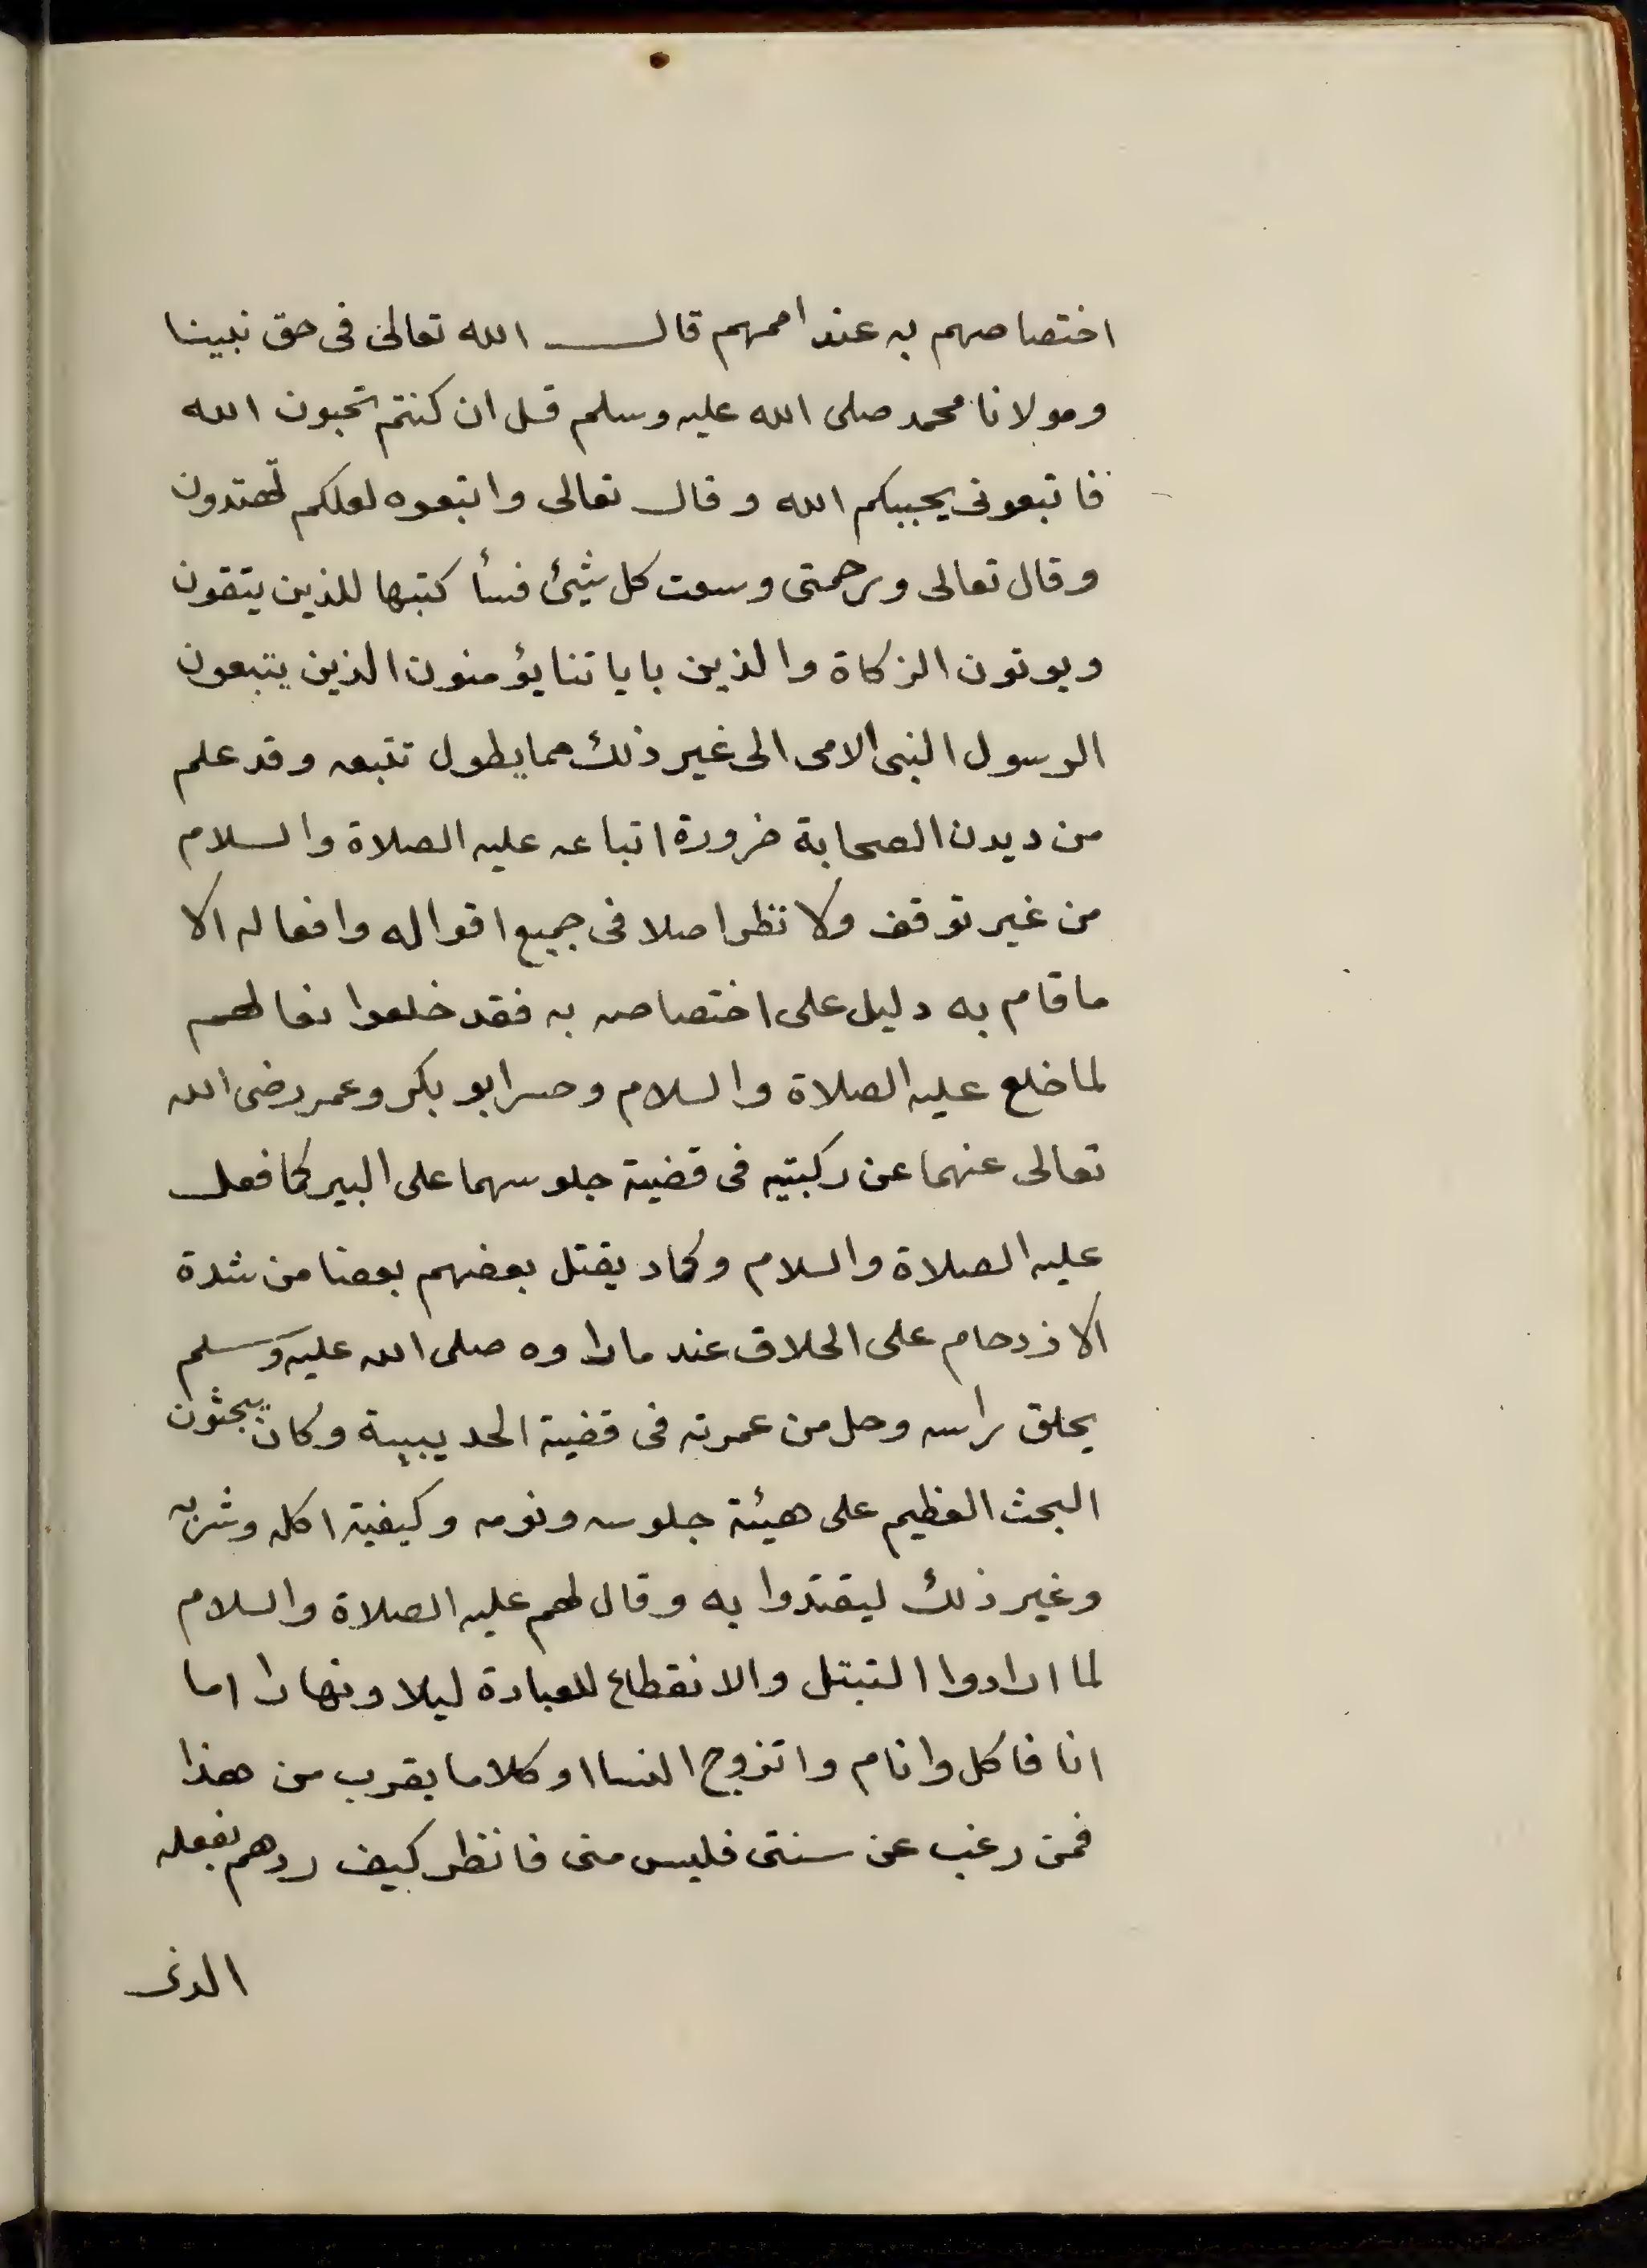 اختصاصهم به عند اممهم قال الله تعالى فى حق نبينا
ومولانا محمد صلى الله عليه وسلم قل ان كنتم تحبون الله
فاتبعونى يحببكم الله وقال تعالى واتبعوه لعلكم تهتدون
وقال تعالى ورحمتى وسعت كل شيئ فسأكتبها للذين يتقون
ويوتون الزكاة والذين باياتنا يؤمنون الذين يتبعون
الرسول النبى الامى الى غير ذلك مما يطول تتبعه وقد علم
من ديدن الصحابة ضرورة اتباعه عليه الصلاة والسلام
من غير توقف ولا نظر اصلا فى جميع اقواله وافعاله الا
ما قام به دليل على اختصاصه به فقد خلعوا نعالهم
لما خلع عليه الصلاة والسلام وحسر ابو بكر وعمر رضى الله
تعالى عنهما عن ركبتيه فى قضية جلوسهما على البير كما فعل
عليه الصلاة والسلام وكاد يقتل بعضهم بعضا من شدة
الازدحام على الحلاق عند ما راوه صلى الله عليه وسلم
يحلق راسه وحل من عمرته فى قضية الحديبية وكان يبحثون
البحث العظيم على هيئة جلوسه ونومه وكيفية اكله وشربه
وغير ذلك ليقتدوا به وقال لهم عليه الصلاة والسلام
لما ارادوا التبتل والانقطاع للعبادة ليلا ونهارا اما
انا فاكل وانام واتزوج النسا او كلاما يقرب من هذا
فمن رغب عن سنتى فليس منى فانظر كيف ردهم بفعله
الذى